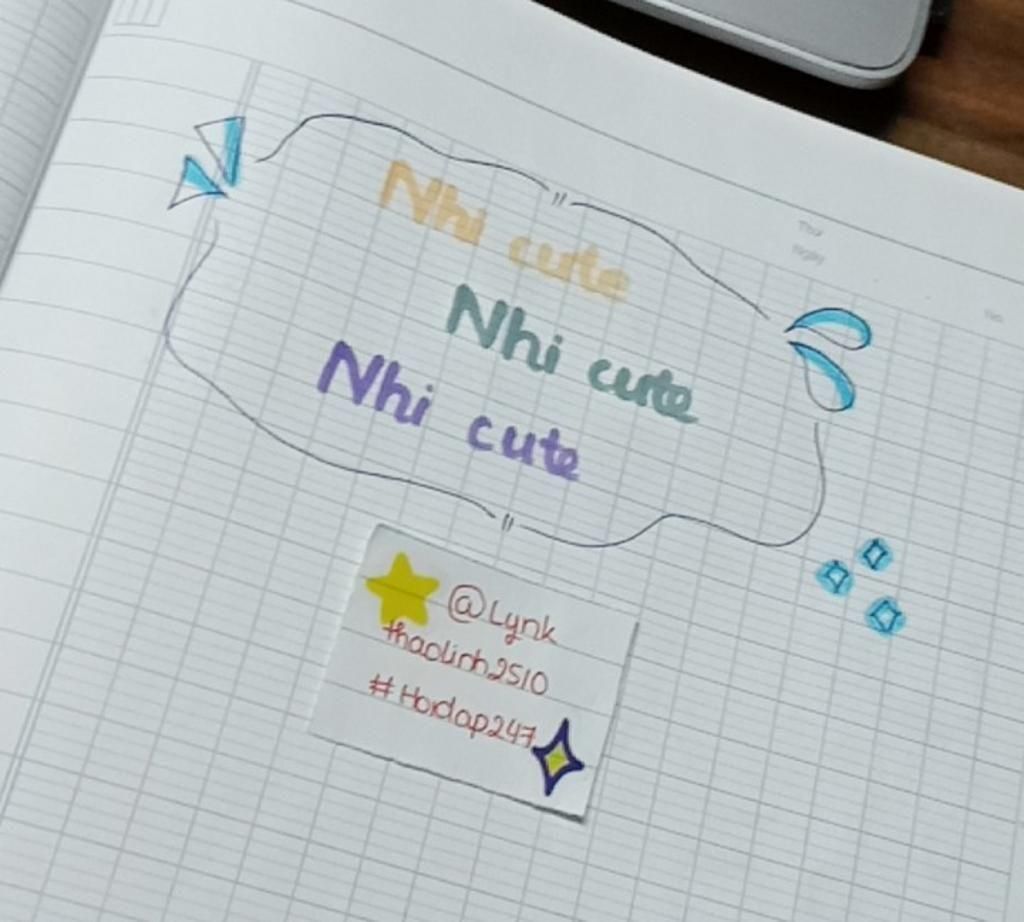 Thứ
Ngày
No.
Nhi cute
Nhi cute
Nhi cute
@Lynk
thaolinh2510
#Hoidap247